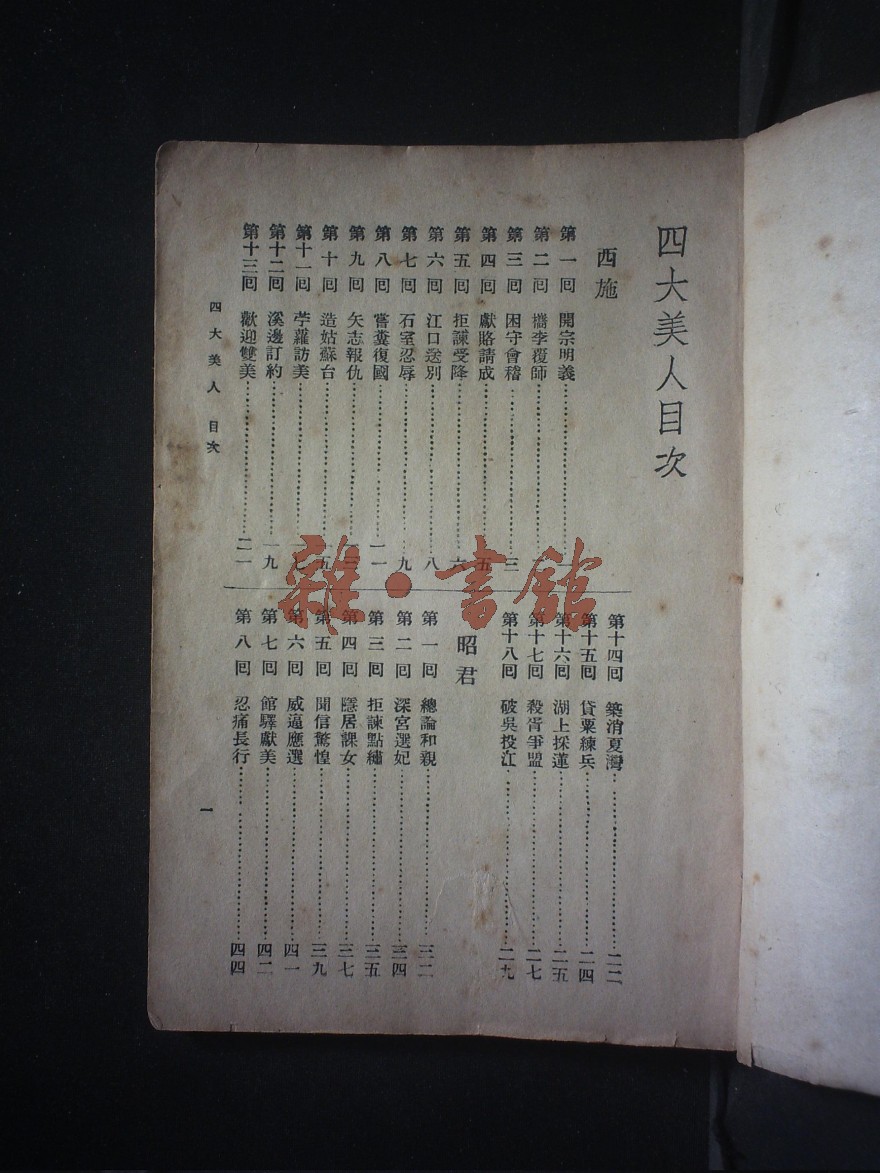 四大美人目次
西施
第一回 開宗明義
第二回 檇李覆師
第三回 困守會稽 三
第四回 獻賂請成 五
第五回 拒諫受降 六
第六回 江口送別 八
第七回 石室忍辱 九
第八回 嘗糞復國 一一
第九回 矢志報仇 一三
第十回 造姑蘇台 一五
第十一回 苧蘿訪美 一七
第十二回 溪邊訂約 一九
第十三回 歡迎雙美 二一
第十四回 築消夏灣
第十五回 貸粟練兵 二四
第十六回 湖上採蓮 二五
第十七回 殺胥爭盟 二七
第十八回 破吳投江 二九
昭君
第一回 總論和親 三二
第二回 深宮選妃 三四
第三回 拒諫點繡 三五
第四回 隱居課女 三七
第五回 聞信驚惶 三九
第六回 威逼應選 四一
第七回 館驛獻美 四二
第八回 忍痛長行 四四
四大美人 目次
一
雜·書館